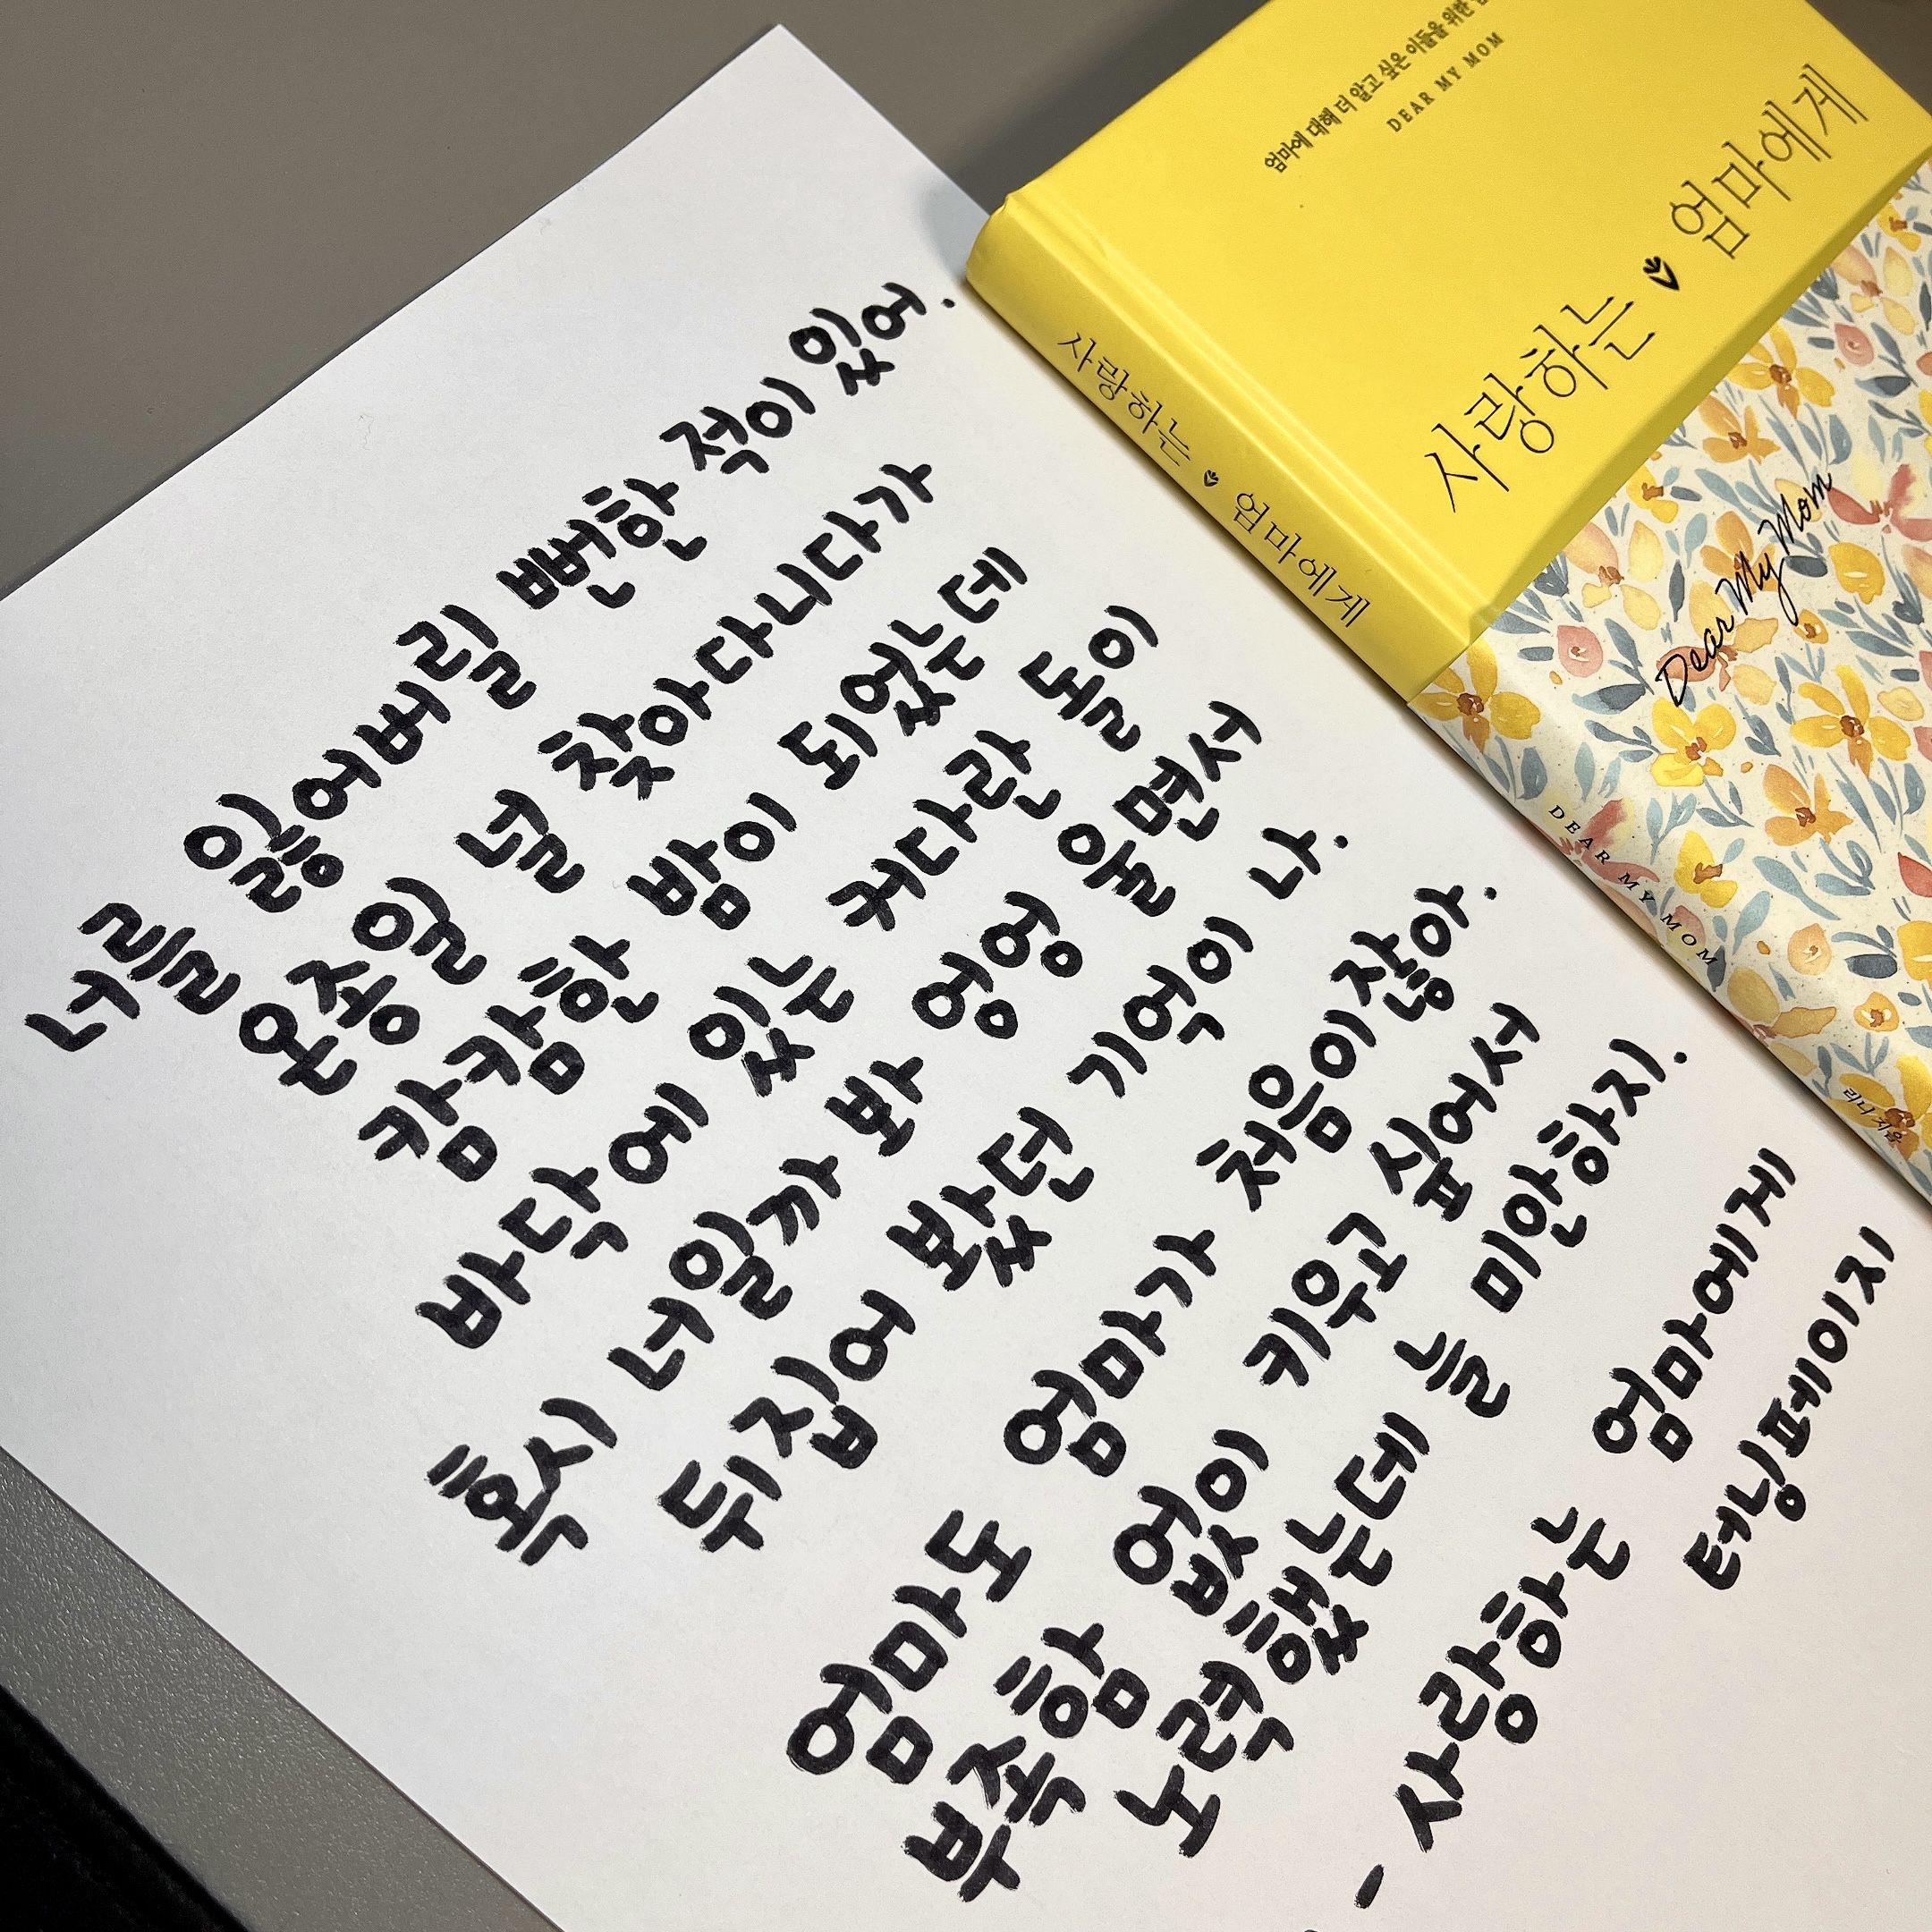 너를 잃어버릴 뻔한 적이 있어.
온종일 널 찾아다니다가
캄캄한 밤이 되었는데
바닥에 있는 커다란 돌이
혹시 너일까 봐 엉엉 울면서
뒤집어 봤던 기억이 나.
엄마도 엄마가 처음이잖아.
부족함 없이 키우고 싶어서
노력했는데 늘 미안하지.
- 사랑하는 엄마에게
터닝페이지
엄마에 대해 더 알고 싶은 이들을 위한
DEAR MY MOM
사랑하는 엄마에게
사랑하는 엄마에게
Dear My Mom
DEAR MY MOM
리나 지음